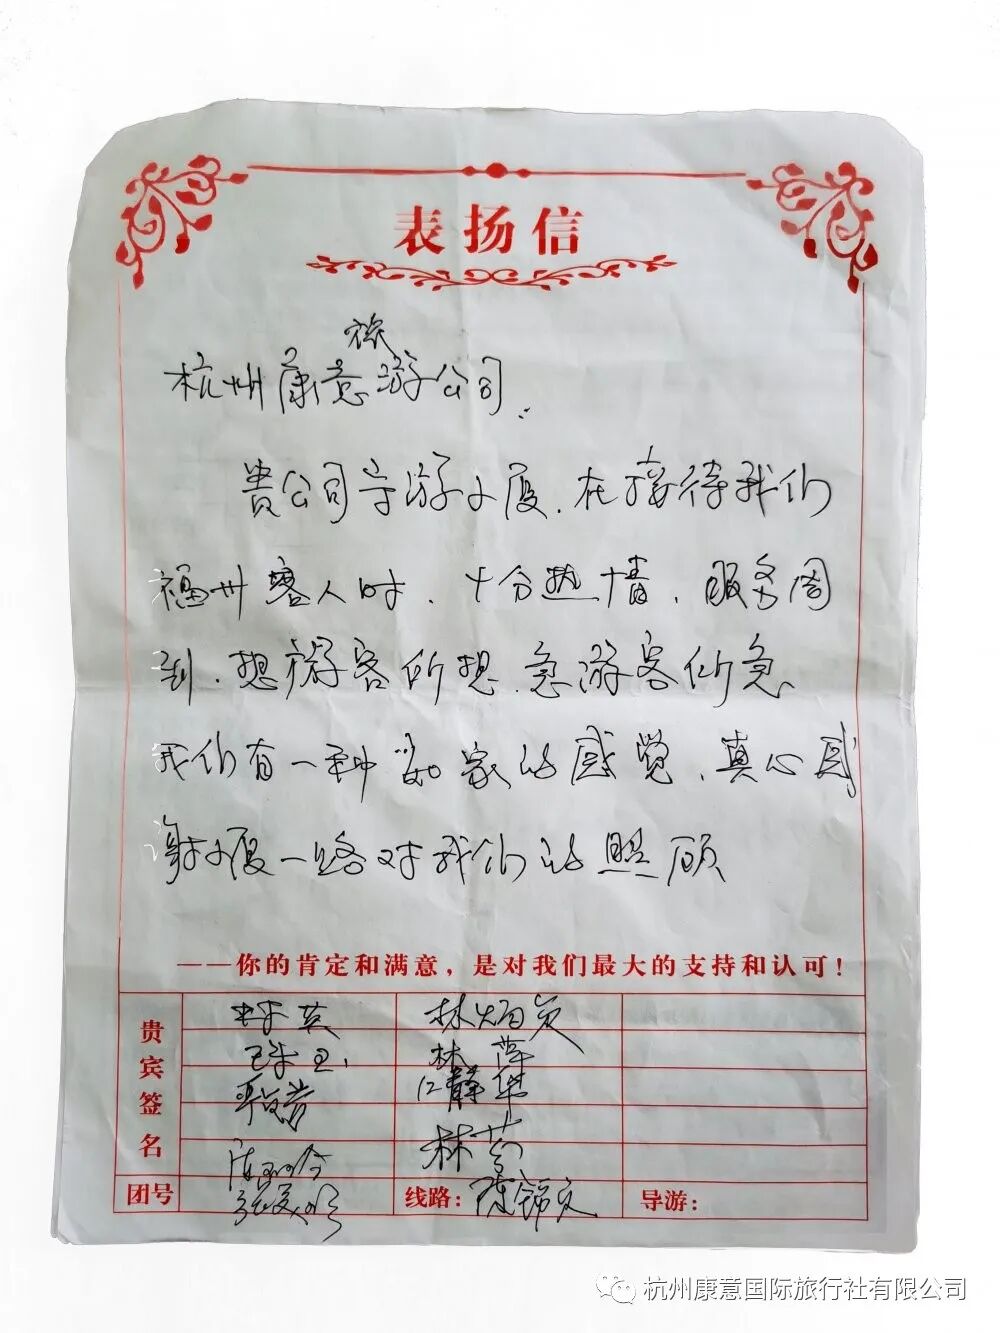 表扬信
杭州康意旅游公司:
贵公司导游小厦.在接待我们
福州客人时.十分热情.服务周
到.想游客所想.急游客所急
我们有一种如家的感觉、真心感
谢小厦一路对我们的照顾
——你的肯定和满意，是对我们最大的支持和认可!
贵宾签名
林萍
江静华
林芳
团号
线路:
导游:
杭州康意国际旅行社有限公司